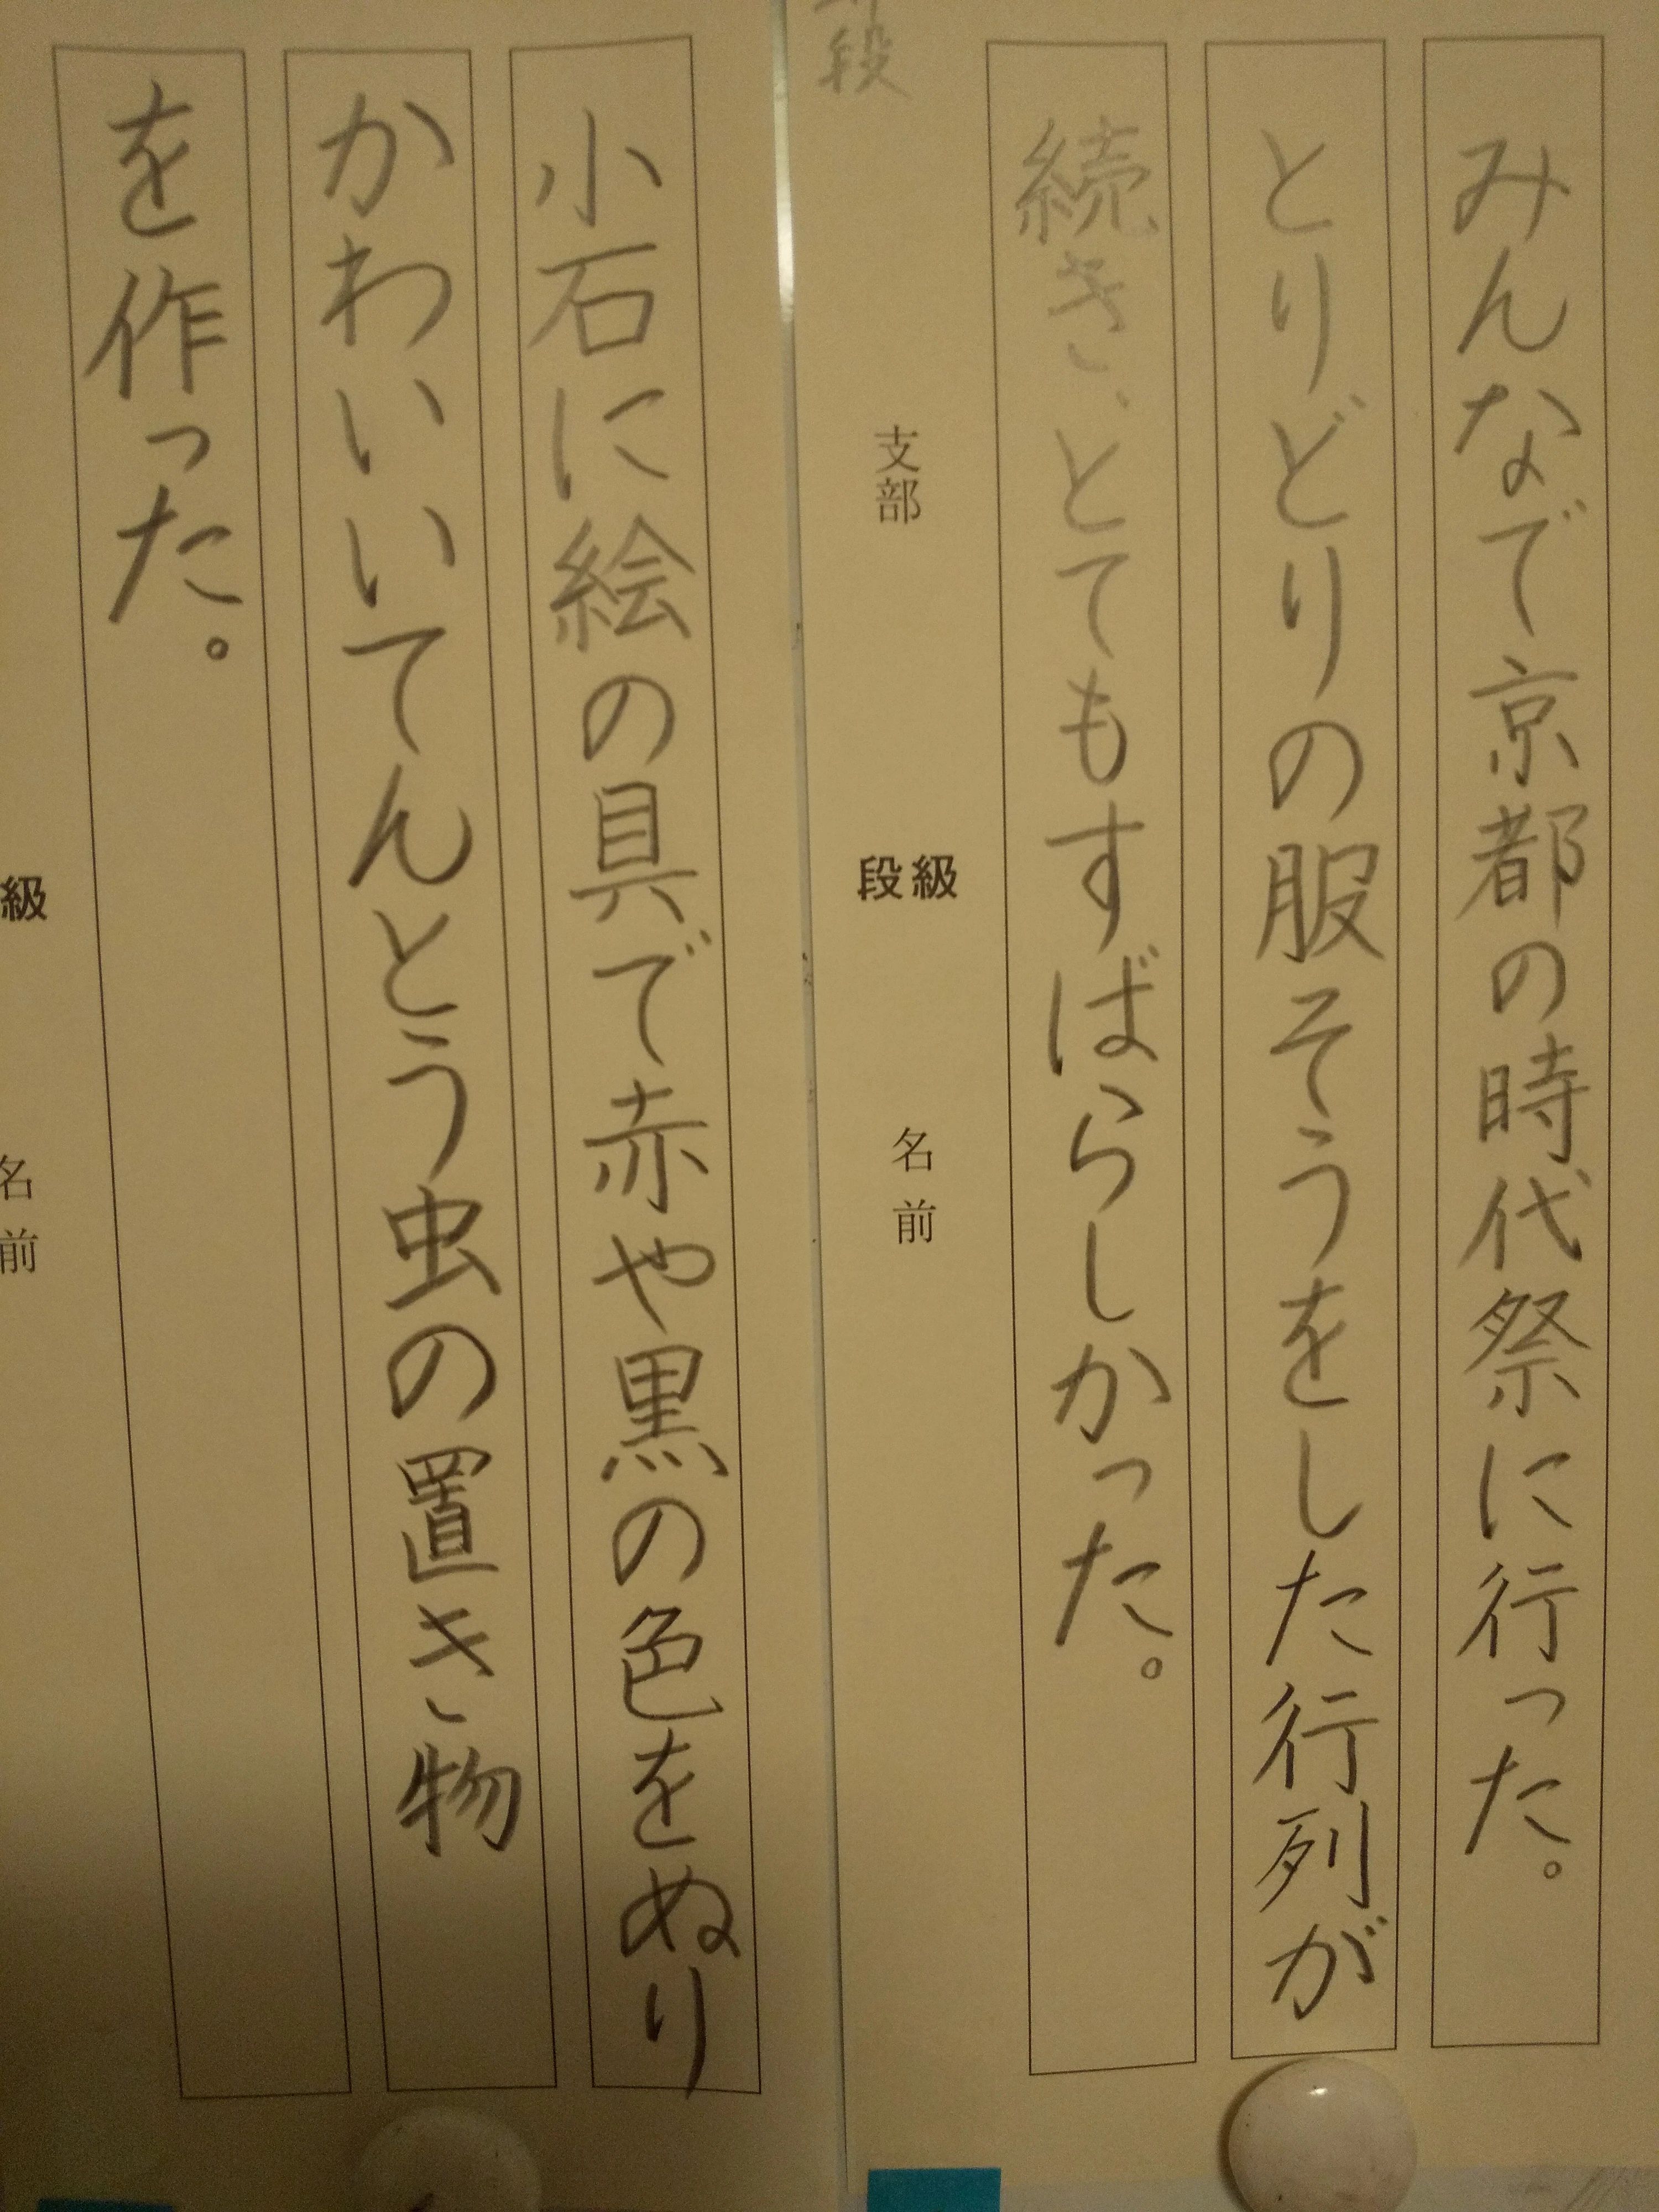 みんなで京都の時代祭に行った。
とりどりの服そうをした行列が
続き、とてもすばらしかった。
段
支部
段級
名前
小石に絵の具で赤や黒の色をぬり
かわいいてんとう虫の置き物
を作った。
級
名前